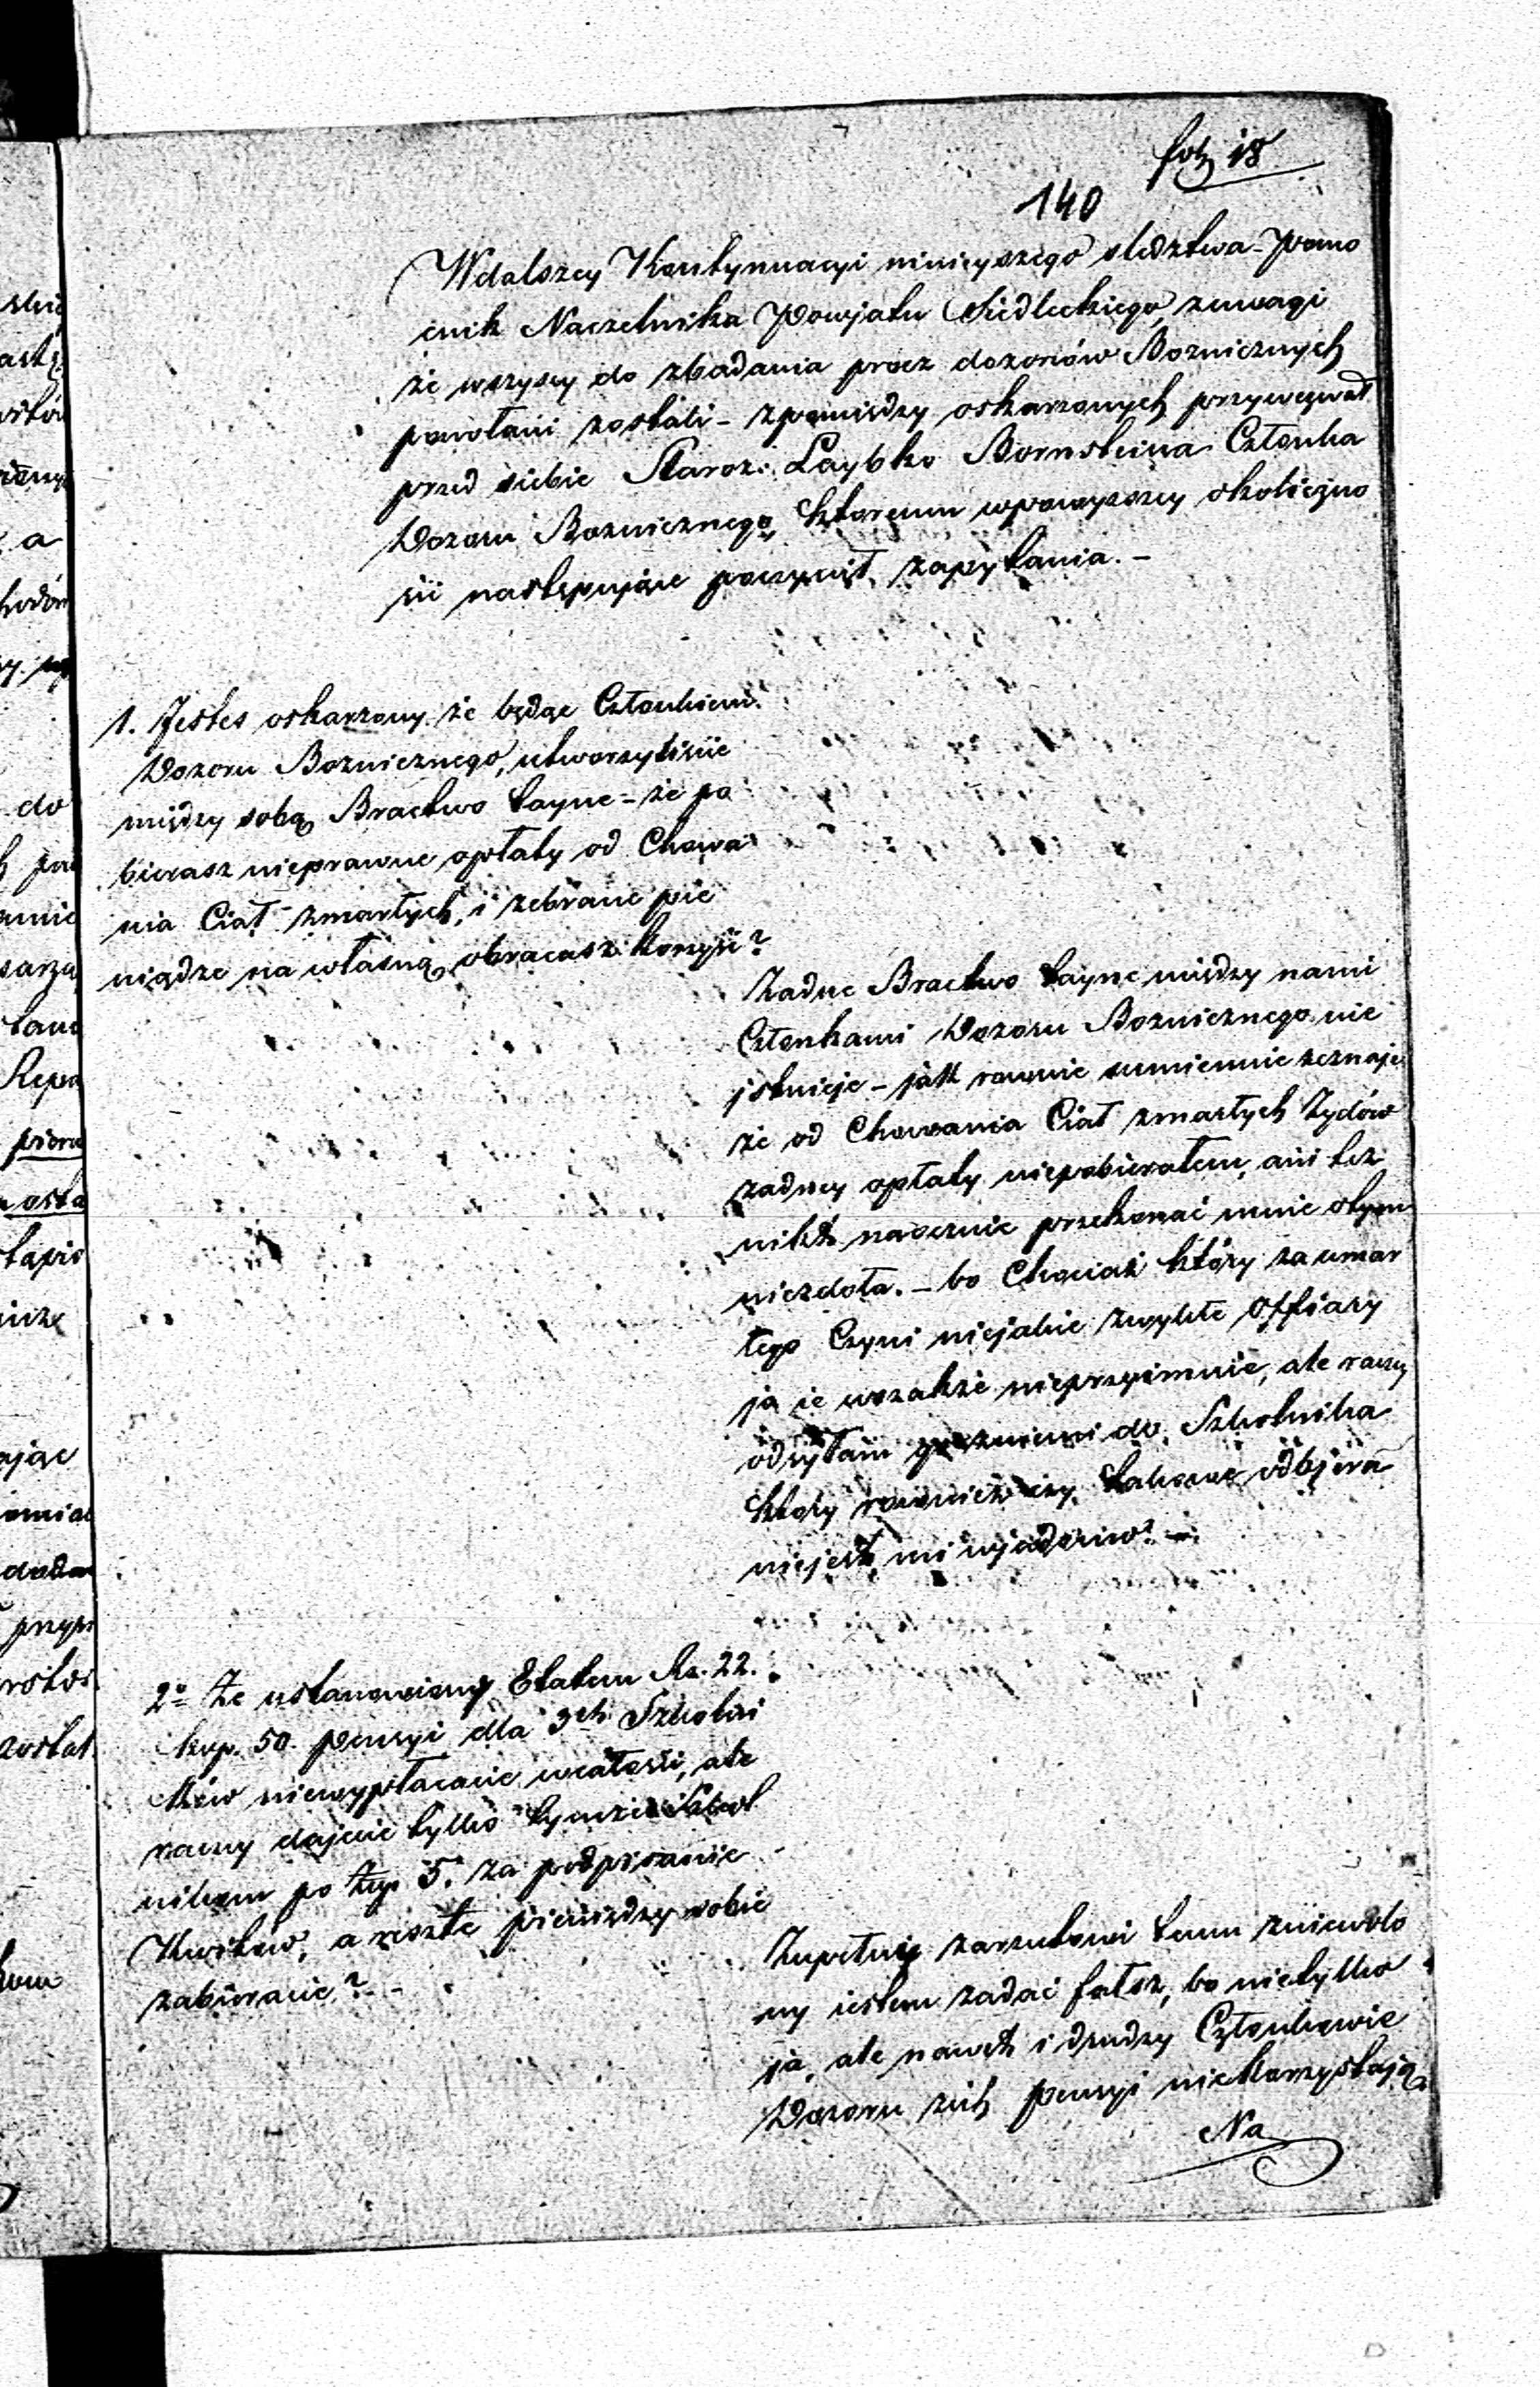 fol. 18
140
W dalszey Kontynuacyi ninieyszego sledztwa - Pomo
cnik Naczelnika Powjatu Siedleckiego, z uwagi
że wszyscy do zbadania przez dozorów Boznicznych
powołani zostali - z pomiędzy oskarzonych przywezwał
przed siebie Staroz. Laybko Bornsteina Członka
Dozoru Boznicznego, ktoremu w powyzszey okoliczno
sci następujące poczynił zapytania. -
1. Jestes oskarzony że będąc Członkiem
Dozoru Boznicznego, utworzyliscie
między sobą Bractwo tayne - że po
bierasz nieprawne opłaty od Chowa
nia Ciał zmarłych, i zebrane pie
niądze na własną obracasz korzyść?
Żadne Bractwo tayne między nami
Członkami Dozoru Boznicznego nie
jstnieje - jak rownie sumiennie zeznaję
że od Chowania Ciał zmarłych Żydów
żadney opłaty niepobierałem, ani też
nikt naocznie przekonać mnie o tym
niezdoła. - bo Chociaż który za umar
łego Czyni niejakie zwykłe Offiary
ja ie wszakże nieprzyimuie, ale raczey
odsyłam z niemi do Szkolnika
który rownież czy takowe odbjera
niejest mi wjadomo. -
2o Że ustanowioney Etatem Rs. 22.
kop. 50. pensyi dla 3ch Szkolni
ków niewypłacacie w całosci, ale
raczey dajecie tylko tymże Szkol
nikom po 5. za podpisanie
Kwitów, a resztę pieniędzy sobie
zabieracie?
Zupełnie zarzutowi temu zniewolo
ny iestem zadać fałsz, bo nietylko
ja, ale nawet i drudzy Członkowie
Dozoru z ich pensyi nie korzystają
Na